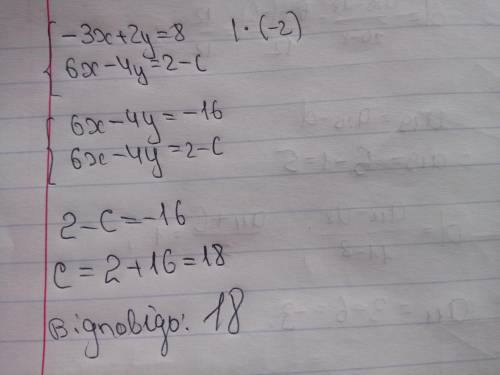 -3x+2y=8 |·(-2)
6x-4y=2-c
6x-4y=-16
6x-4y=2-c
2-c=-16
c=2+16=18
Відповідь: 18